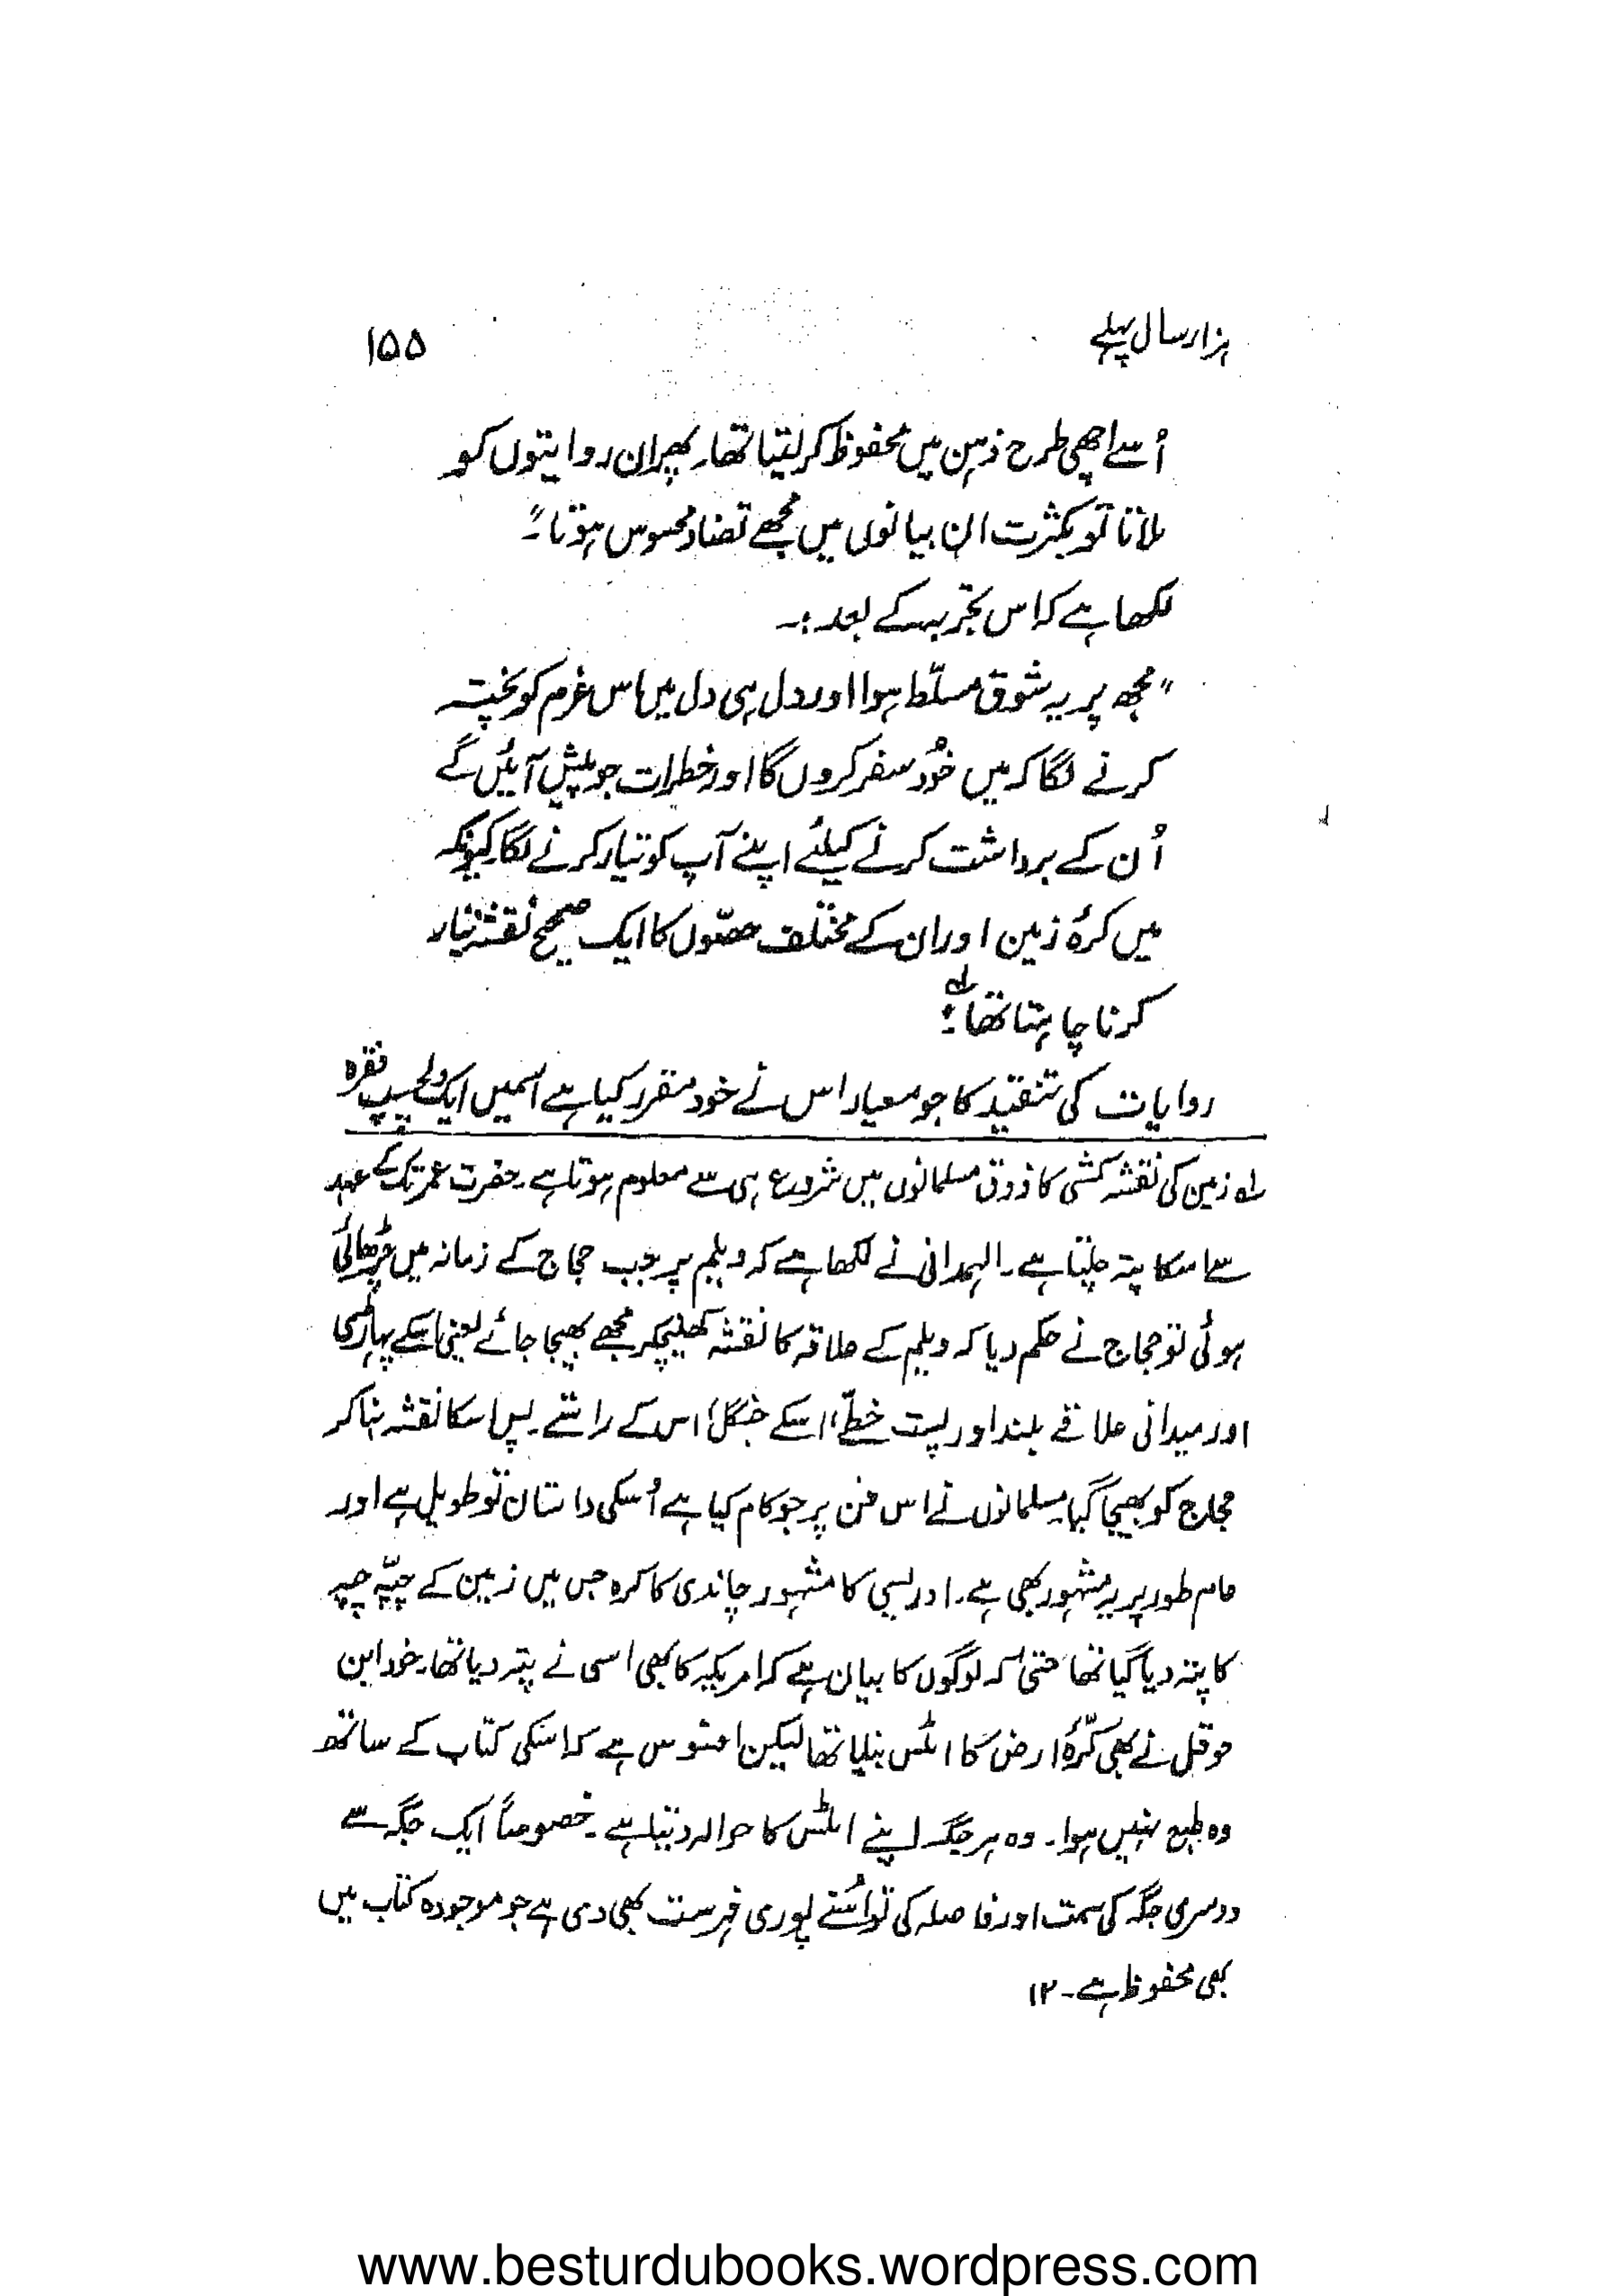 ہزار سال پہلے ۱۵۵
اُسے اچھی طرح ذہن میں محفوظ کر لیتا تھا، پھر ان روایتوں کو
ملاتا تو بکثرت ان بیانوں میں مجھے تضاد محسوس ہوتا"۔
لکھا ہے کہ اس تجربہ کے بعد :۔
"مجھ پر یہ شوق مسلّط ہوا اور دل ہی دل میں اس عزم کو پختہ
کرنے لگا کہ میں خُود سفر کروں گا اور خطرات جو پیش آئیں گے
اُن کے برداشت کرنے کیلئے اپنے آپ کو تیار کرنے لگا کیونکہ
میں کرۂ زمین اور ان کے مختلف حصّوں کا ایک صحیح نقشہ تیار
کرنا چاہتا تھا"؂۱
روایات کی تنقید کا جو معیار اس نے خود مقرر کیا ہے اسمیں ایک دلچسپ فقرہ
؂۱ زمین کی نقشہ کشی کا ذوق مسلمانوں میں شروع ہی سے معلوم ہوتا ہے۔ حضرت عمر تک کے عہد
سے اسکا پتہ چلتا ہے۔ الہمدانی نے لکھا ہے کہ دیلم پر جب حجاج کے زمانہ میں چڑھائی
ہوئی تو حجاج نے حکم دیا کہ دیلم کے علاقہ کا نقشہ کھینچکر مجھے بھیجا جائے یعنی اسکے پہاڑی
اور میدانی علاقے بلند اور پست خطّے، اسکے جنگل، اس کے راستے۔ پس اسکا نقشہ بنا کر
حجاج کو بھیجا گیا۔ مسلمانوں نے اس فن پر جو کام کیا ہے اُسکی داستان تو طویل ہے اور
عام طور پر یہ مشہور بھی ہے۔ ادریسی کا مشہور چاندی کا کرہ جس میں زمین کے چپّہ چپہ
کا پتہ دیا گیا تھا حتیٰ کہ لوگوں کا بیان ہے کہ امریکہ کا بھی اسی نے پتہ دیا تھا۔ خود ابن
حوقل نے بھی کرّۂ ارض کا اٹلس بنایا تھا لیکن افسوس ہے کہ اسکی کتاب کے ساتھ
وہ طبع نہیں ہوا۔ وہ ہر جگہ اپنے اٹلس کا حوالہ دیتا ہے۔ خصوصاً ایک جگہ سے
دوسری جگہ کی سمت اور فاصلہ کی تو اُسنے پوری فہرست بھی دی ہے جو موجودہ کتاب میں
بھی محفوظ ہے۔ ۱۲
www.besturdubooks.wordpress.com